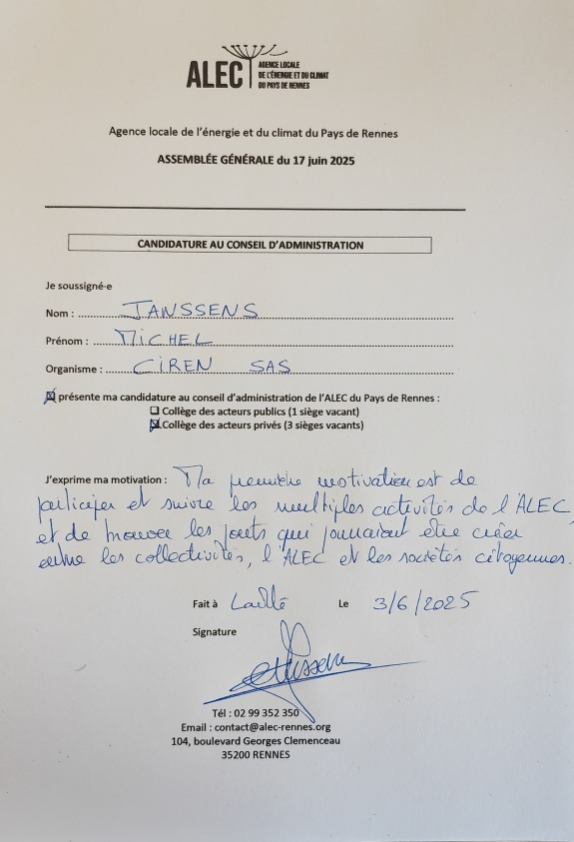 ALEC
AGENCE LOCALE
DE L'ÉNERGIE ET DU CLIMAT
DU PAYS DE RENNES
Agence locale de l'énergie et du climat du Pays de Rennes
ASSEMBLÉE GÉNÉRALE du 17 juin 2025
CANDIDATURE AU CONSEIL D'ADMINISTRATION
Je soussigné-e
Nom : JANSSENS
Prénom : MICHEL
Organisme : CIREN SAS
présente ma candidature au conseil d'administration de l'ALEC du Pays de Rennes :
Collège des acteurs publics (1 siège vacant)
Collège des acteurs privés (3 sièges vacants)
J'exprime ma motivation : Ma première motivation est de
participer et suivre les multiples activités de l'ALEC
et de trouver les ponts qui pourraient être créer
entre les collectivités, l'ALEC et les sociétés citoyennes.
Fait à Laillé Le 3/6/2025
Signature
Tél : 02 99 352 350
Email : contact@alec-rennes.org
104, boulevard Georges Clemenceau
35200 RENNES